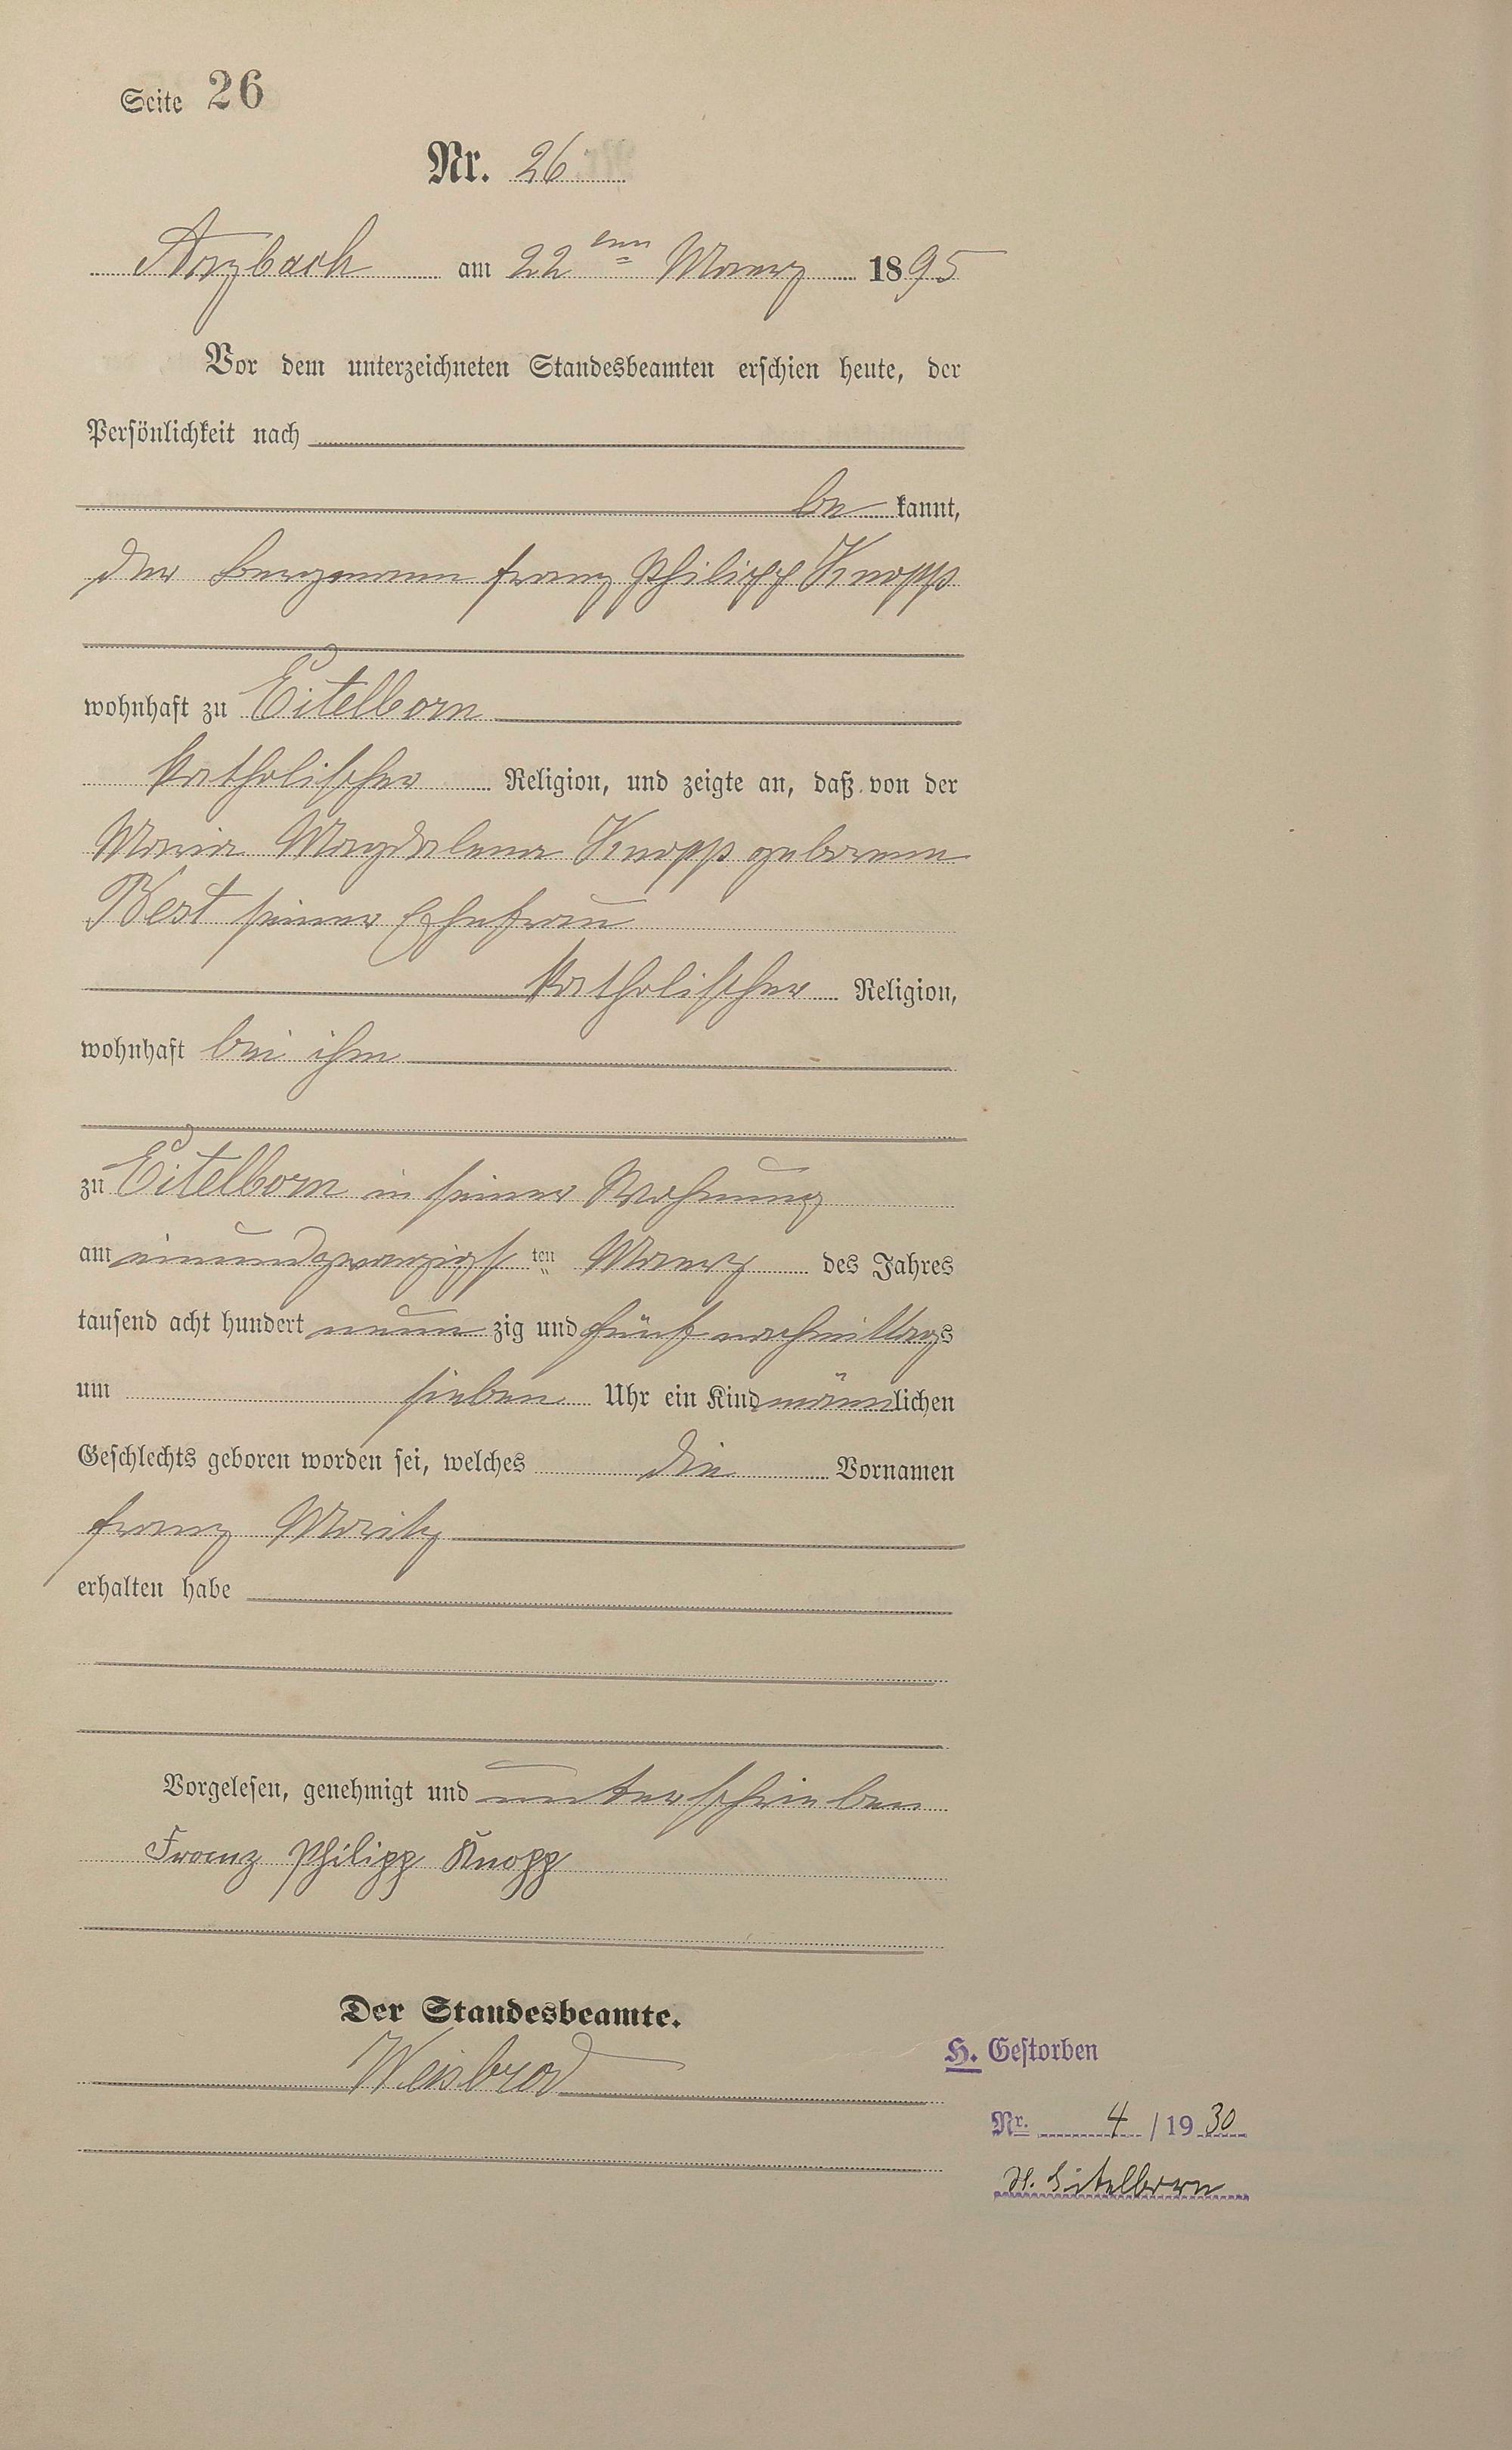 Seite 26
Nr. 26
Arzbach am 22ten Maerz 1895
Vor dem unterzeichneten Standesbeamten erschien heute, der
Persönlichkeit nach
be kannt,
der Bergmann Franz Philipp Knopp
wohnhaft zu Eitelborn
katholischer Religion, und zeigte an, daß von der
Maria Magdalena Knopp geborenen
Best seiner Ehefrau
katholischer Religion,
wohnhaft bei ihm
zu Eitelborn in seiner Wohnung
am einundzwanzigsten Maerz des Jahres
tausend acht hundert neun zig und fünf nachmittags
um sieben Uhr ein Kind männlichen
Geschlechts geboren worden sei, welches die Vornamen
Franz Moritz
erhalten habe
Vorgelesen, genehmigt und unterschrieben
Franz Philipp Knopp
Der Standesbeamte.
Weisbrod
H. Gestorben
Nr. 4 / 1930
St. Eitelborn